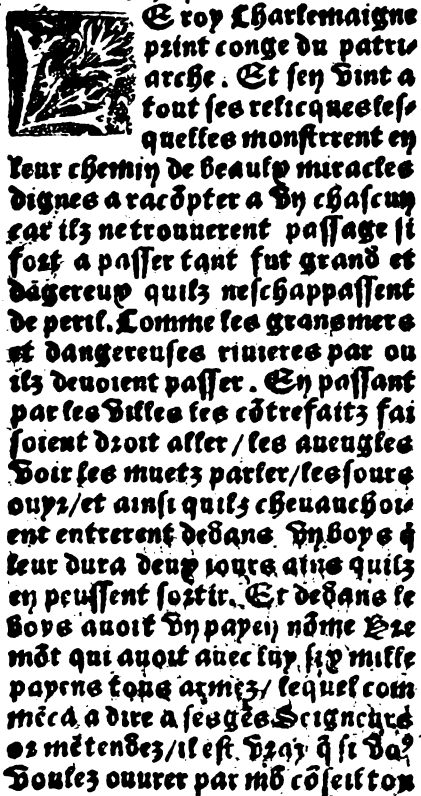 LE roy Charlemaigne
print conge du patri-
arche. Et sen vint a
tout ses relicques les-
quelles monstrrent en
leur chemin de beaulx miracles
dignes a racõpter a vn chascun
car ilz ne trouuerent passage si
fort a passer tant fut grand et
dãgereux quilz neschappassent
de peril. Comme les grans mers
et dangereuses riuieres par ou
ilz deuoient passer. En passant
par les villes les cõtrefaitz fai
soient droit aller / les aueugles
voir les muetz parler / les sours
ouyr / et ainsi quilz cheuauchoi-
ent entrerent dedans vn boys q̃
leur dura deux iours ains quilz
en peussent sortir. Et dedans le
boys auoit vn payen nõme Bre
mõt qui auoit auec luy six mille
payens tous armez / lequel com
mẽca a dire a ses gẽs Seigneurs
or mẽtendez / il est vray q̃ si voꝰ
voulez ouurer par mõ cõseil tou